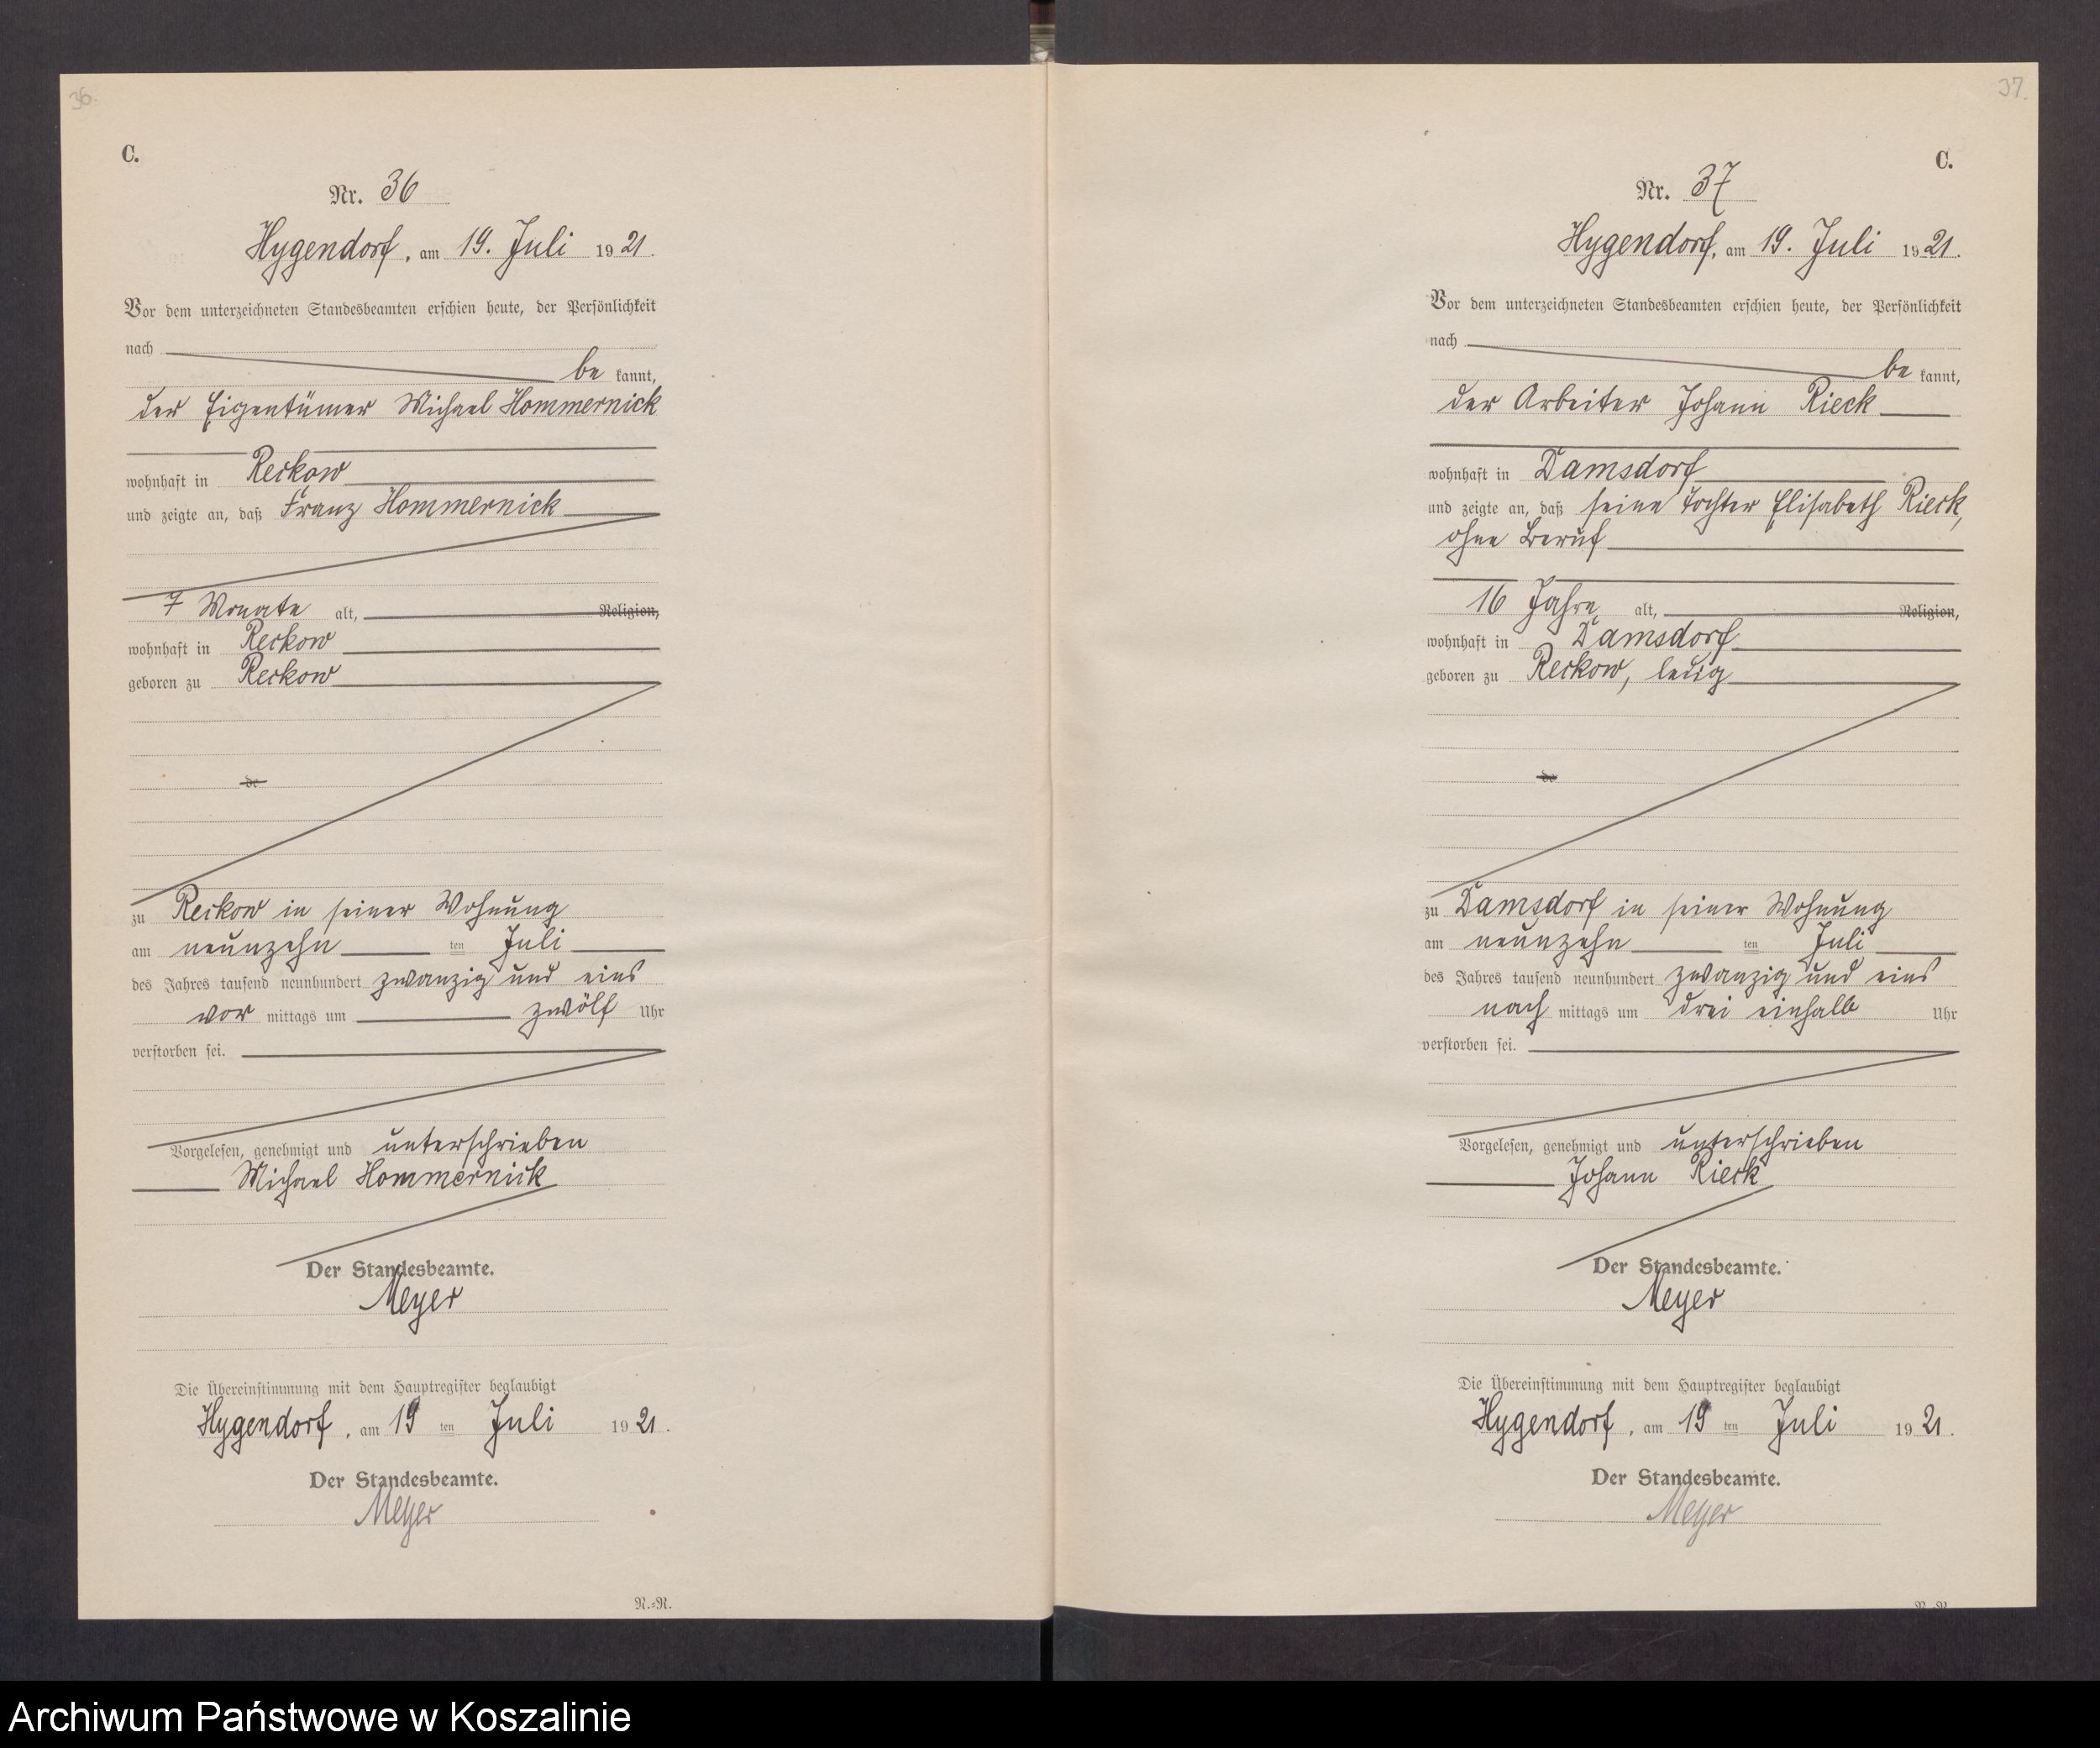 36.
C.
Nr. 36
Hygendorf, am 19. Juli 1921.
Vor dem unterzeichneten Standesbeamten erschien heute, der Persönlichkeit
nach
be kannt,
der Eigentümer Michael Hommernick
wohnhaft in Reckow
und zeigte an, daß Franz Hommernick
7 Monate alt, Religion,
wohnhaft in Reckow
geboren zu Reckow
de
zu Reckow in seiner Wohnung
am neunzehn ten Juli
des Jahres tausend neunhundert zwanzig und eins
vor mittags um zwölf Uhr
verstorben sei.
Vorgelesen, genehmigt und unterschrieben
Michael Hommernick
Der Standesbeamte.
Meyer
Die Übereinstimmung mit dem Hauptregister beglaubigt
Hygendorf, am 19 ten Juli 1921.
Der Standesbeamte.
Meyer
R.=R.
37.
C.
Nr. 37
Hygendorf, am 19. Juli 1921.
Vor dem unterzeichneten Standesbeamten erschien heute, der Persönlichkeit
nach
be kannt,
der Arbeiter Johann Rieck
wohnhaft in Damsdorf
und zeigte an, daß seine Tochter Elisabeth Rieck,
ohne Beruf
16 Jahre alt, Religion,
wohnhaft in Damsdorf
geboren zu Reckow,
de
zu Damsdorf in seiner Wohnung
am neunzehn ten Juli
des Jahres tausend neunhundert zwanzig und eins
nach mittags um drei einhalb Uhr
verstorben sei.
Vorgelesen, genehmigt und unterschrieben
Johann Rieck
Der Standesbeamte.
Meyer
Die Übereinstimmung mit dem Hauptregister beglaubigt
Hygendorf, am 19 ten Juli 1921.
Der Standesbeamte.
Meyer
Archiwum Państwowe w Koszalinie